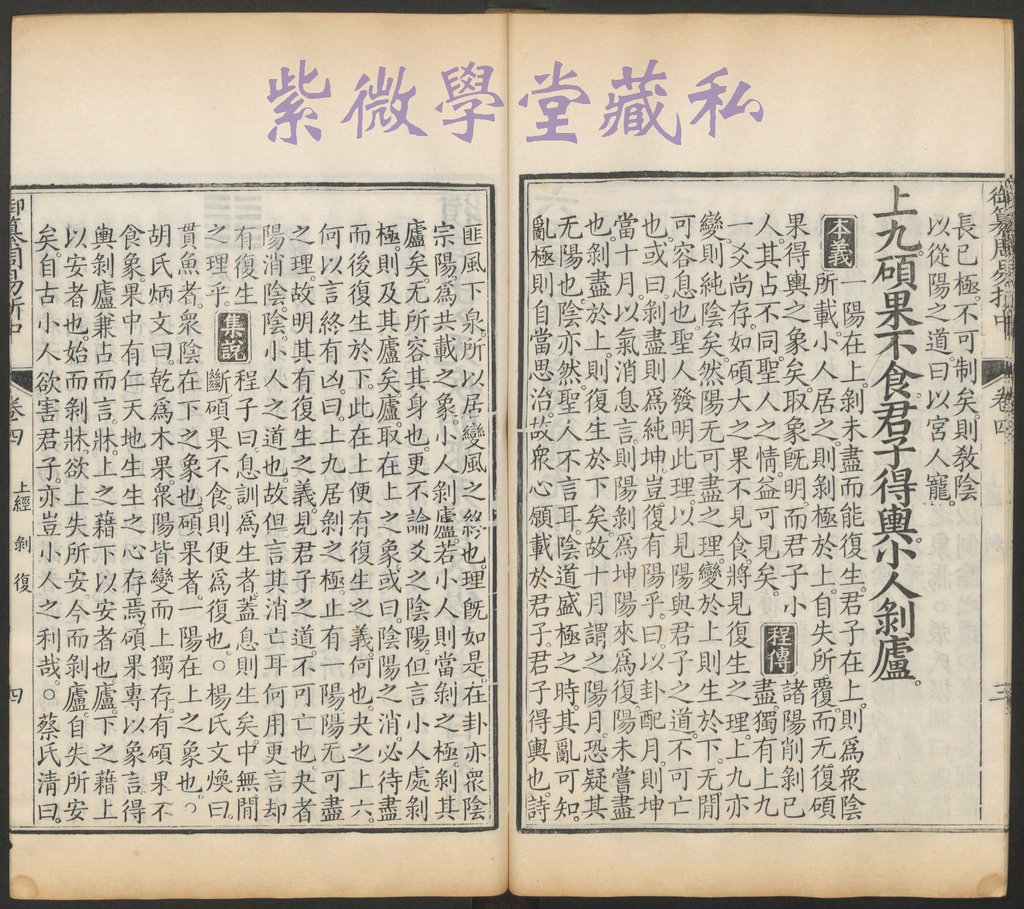 紫微學堂藏私
御纂周易折中 卷四 三
長已極。不可制矣。則敎陰
以從陽之道。曰以宮人寵。
上九。碩果不食。君子得輿。小人剝廬。
本義 一陽在上。剝未盡而能復生。君子在上。則爲衆陰
所載。小人居之。則剝極於上。自失所覆。而无復碩
果得輿之象矣。取象旣明。而君子小
人其占不同。聖人之情。益可見矣。
程傳 諸陽削剝已
盡。獨有上九
一爻尚存。如碩大之果。不見食。將見復生之理。上九亦
變。則純陰矣。然陽无可盡之理。變於上則生於下。无閒
可容息也。聖人發明此理。以見陽與君子之道。不可亡
也。或曰。剝盡則爲純坤。豈復有陽乎。曰。以卦配月。則坤
當十月。以氣消息言。則陽剝爲坤。陽來爲復。陽未嘗盡
也。剝盡於上。則復生於下矣。故十月謂之陽月。恐疑其
无陽也。陰亦然。聖人不言耳。陰道盛極之時。其亂可知。
亂極則自當思治。故衆心願載於君子。君子得輿也。詩
匪風下泉。所以居變風之終也。理旣如是。在卦亦衆陰
宗陽。爲共載之象。小人剝廬。若小人則當剝之極。剝其
廬矣。无所容其身也。更不論爻之陰陽。但言小人處剝
極。則及其廬矣。廬。取在上之象。或曰。陰陽之消。必待盡
而後復生於下。此在上便有復生之義。何也。夬之上六。
何以言終有凶。曰。上九居剝之極。止有一陽。陽无可盡
之理。故明其有復生之義。見君子之道。不可亡也。夬者
陽消陰。陰。小人之道也。故但言其消亡耳。何用更言却
有復生
之理乎。
集說 程子曰。息訓爲生者。蓋息則生矣。中無閒
斷。碩果不食。則便爲復也。○楊氏文煥曰。
貫魚者。衆陰在下之象也。碩果者。一陽在上之象也。○
胡氏炳文曰。乾爲木果。衆陽皆變而上獨存。有碩果不
食象。果中有仁。天地生生之心存焉。碩果專以象言。得
輿剝廬兼占而言。牀。上之藉下以安者也。廬。下之藉上
以安者也。始而剝牀。欲上失所安。今而剝廬。自失所安
矣。自古小人欲害君子。亦豈小人之利哉。○蔡氏淸曰。
御纂周易折中 卷四 上經 剝 復 四